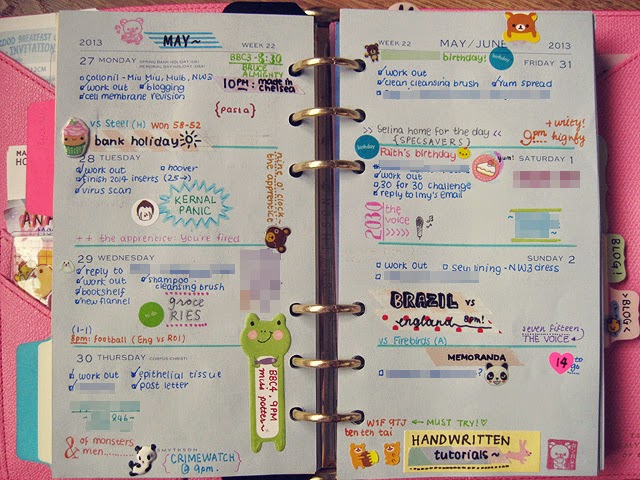 2013
MAY~
WEEK 22
27 MONDAY
SPRING BANK HOLIDAY (UK)
MEMORIAL DAY HOLIDAY (USA)
BBC3 - 8:30
BRUCE
ALMIGHTY
collonil - Miu Miu, Mulb, NW3
work out
blogging
cell membrane revision
10PM: made in
chelsea
{pasta}
vs Steel (H) WON 58-52
bank holiday
28 TUESDAY
work out
hoover
finish 2014 inserts (25→)
virus scan
KERNAL
PANIC
nine o'clock-
the apprentice
++ the apprentice: You're fired
29 WEDNESDAY
reply to
work out
shampoo
cleansing brush
bookshelf
new flannel
groce
RIES
(1-1)
8pm: football (Eng vs ROI)
30 THURSDAY
CORPUS CHRISTI
work out
epithelial tissue
post letter
BBC4, 9PM
miss potter~
& of monsters
men......
SMYTHSON
{CRIMEWATCH
@ 9pm.}
WEEK 22
MAY/JUNE
2013
birthday!
birthday
FRIDAY 31
work out
clean cleansing brush
rum spread
>> Selina home for the day <<
{SPECSAVERS}
+ writey!
9pm hignfy
birthday
Faith's birthday
yum!
SATURDAY 1
work out
30 for 30 challenge
reply to Imy's Email
2030
the
voice
>>>>>
SUNDAY 2
work out
sew lining - NW3 dress
BRAZIL vs
england 8pm!
vs Firebirds (A)
seven fifteen
THE VOICE
MEMORANDA
14 to
go
?
W1F 9TJ ← MUST TRY!♡
ben ten tai
HANDWRITTEN
tutorials~
BLOG!
>BLOG